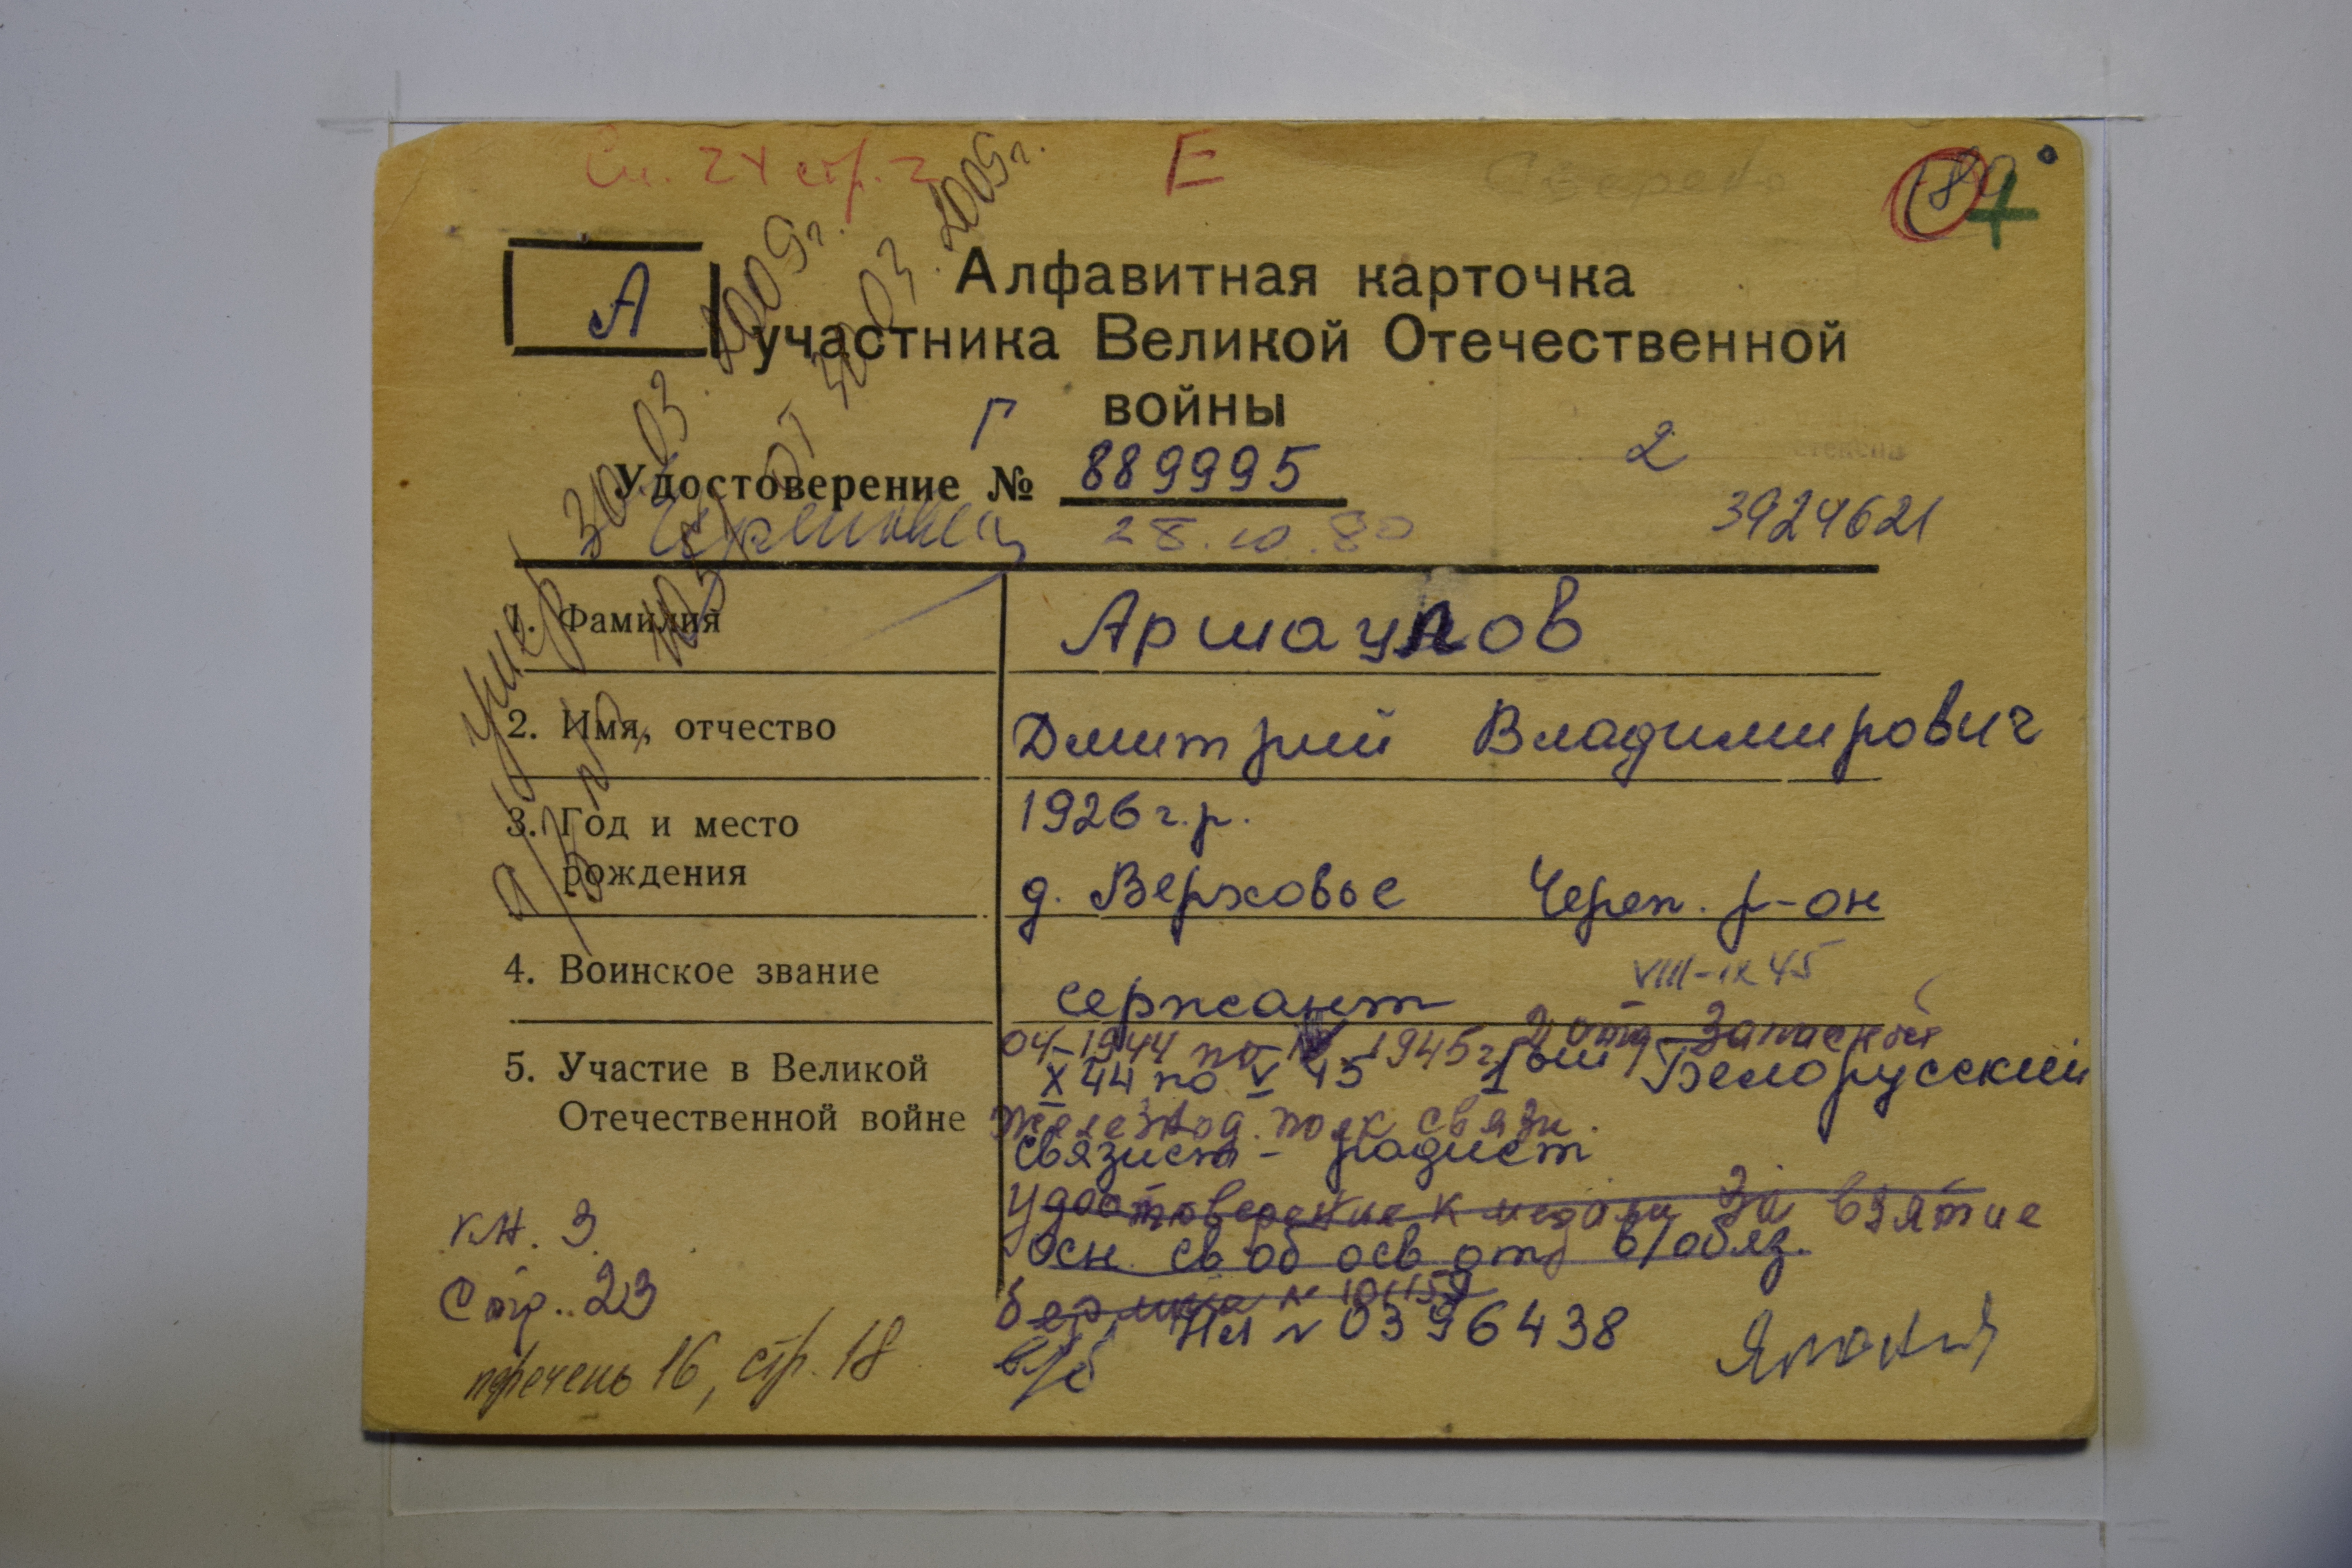 См. 24 стр. 2
Е
Сверено
А
Алфавитная карточка
участника Великой Отечественной
войны
Г
2
Удостоверение № 889995
28.10.80
3924621
умер 30.03.2009г.
от 30.03.2009г.
1. Фамилия Аршаулов
2. Имя, отчество Дмитрий Владимирович
3. Год и место
рождения
1926 г.р.
д. Верховье Череп. р-он
4. Воинское звание сержант
VIII-IX 45
5. Участие в Великой
Отечественной войне
04-1944 по 1945г.
X 44 по V 45 1ый Белорусский
железнод. полк связи.
связист - радист
Удостоверение к медали За взятие
Осн. св об осв от в/обяз.
НЛ № 0396438
в/б
Япония
кн. 3
Стр. 23
перечень 16, стр. 18